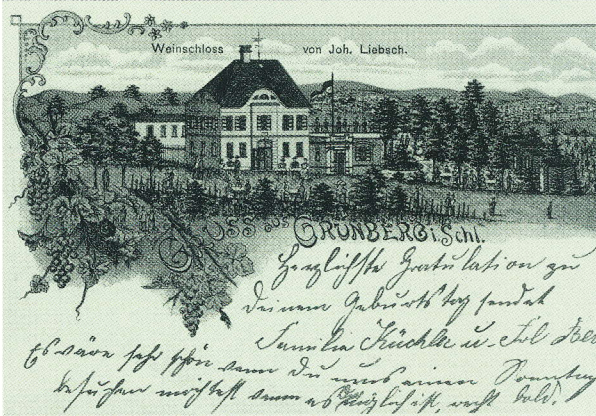 Weinschloss von Joh. Liebsch.
GRUSS aus GRÜNBERG i. Schl.
Herzlichste Gratulation zu
Deinem Geburtstag sendet
Familie Küchler u. Frl
Es wäre sehr schön wenn Du uns einen Sonntag
besuchen möchtest wenn es Dir möglich ist, recht bald.